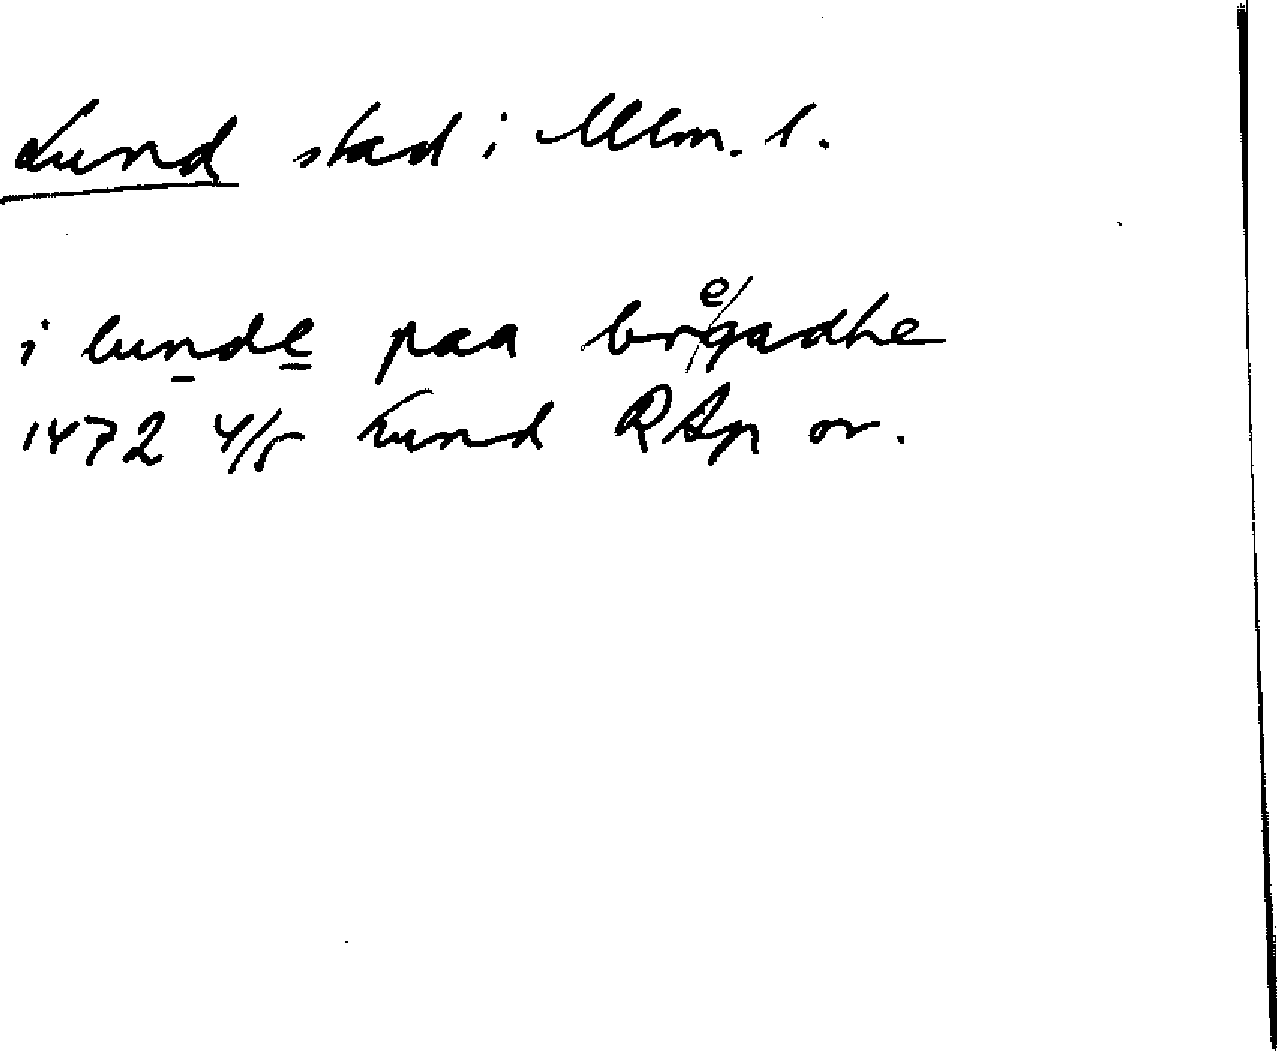 Lund stad i Mlm. l.
i lunde paa bregadhe
1472 4/5 Lund RAp or.